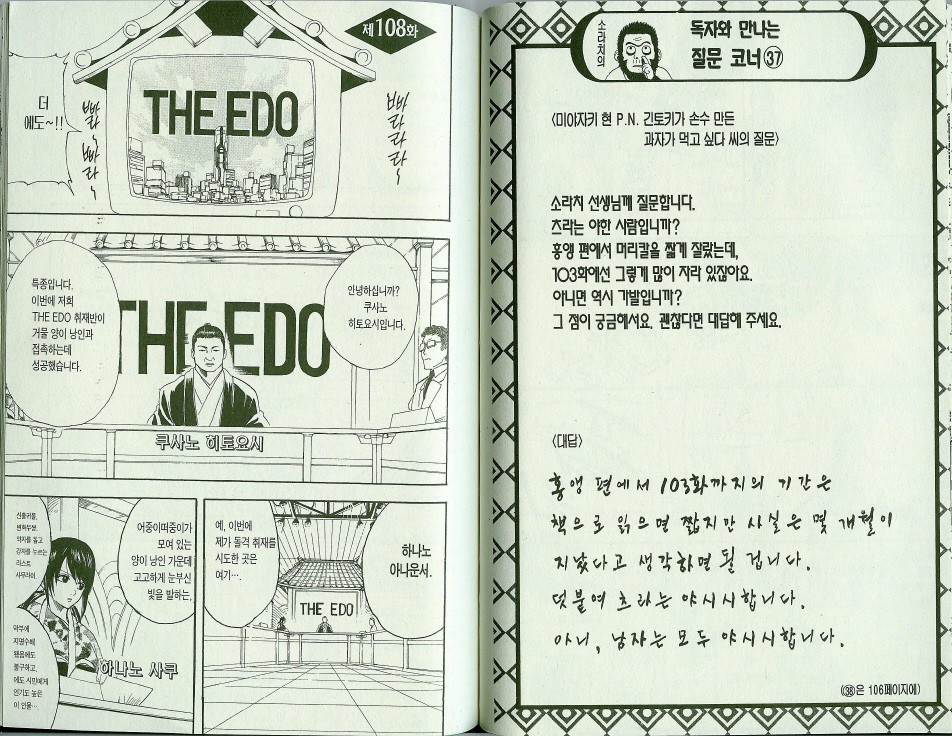 제108화
THE EDO
더
에도~!!
빠라라라~
빠라~ 빠라~
안녕하십니까?
쿠사노
히토요시입니다.
특종입니다.
이번에 저희
THE EDO 취재반이
거물 양이 낭인과
접촉하는데
성공했습니다.
THE EDO
쿠사노 히토요시
하나노
아나운서.
예, 이번에
제가 돌격 취재를
시도한 곳은
여기….
THE EDO
어중이떠중이가
모여 있는
양이 낭인 가운데
고고하게 눈부신
빛을 발하는,
신출귀몰,
변화무쌍,
약자를 돕고
강자를 누르는
라스트
사무라이.
막부에
지명수배
됐음에도
불구하고,
에도 시민에게
인기도 높은
이 인물…
하나노 사쿠
소라치의
독자와 만나는
질문 코너 ㊲
〈미야자키 현 P.N. 긴토키가 손수 만든
과자가 먹고 싶다 씨의 질문〉
소라치 선생님께 질문합니다.
츠라는 야한 사람입니까?
홍앵 편에서 머리칼을 짧게 잘랐는데,
103화에선 그렇게 많이 자라 있잖아요.
아니면 역시 가발입니까?
그 점이 궁금해서요. 괜찮다면 대답해 주세요.
〈대답〉
홍앵 편에서 103화까지의 기간은
책으로 읽으면 짧지만 사실은 몇 개월이
지났다고 생각하면 될 겁니다.
덧붙여 츠라는 야시시합니다.
아니, 남자는 모두 야시시합니다.
(㊳은 106페이지에)